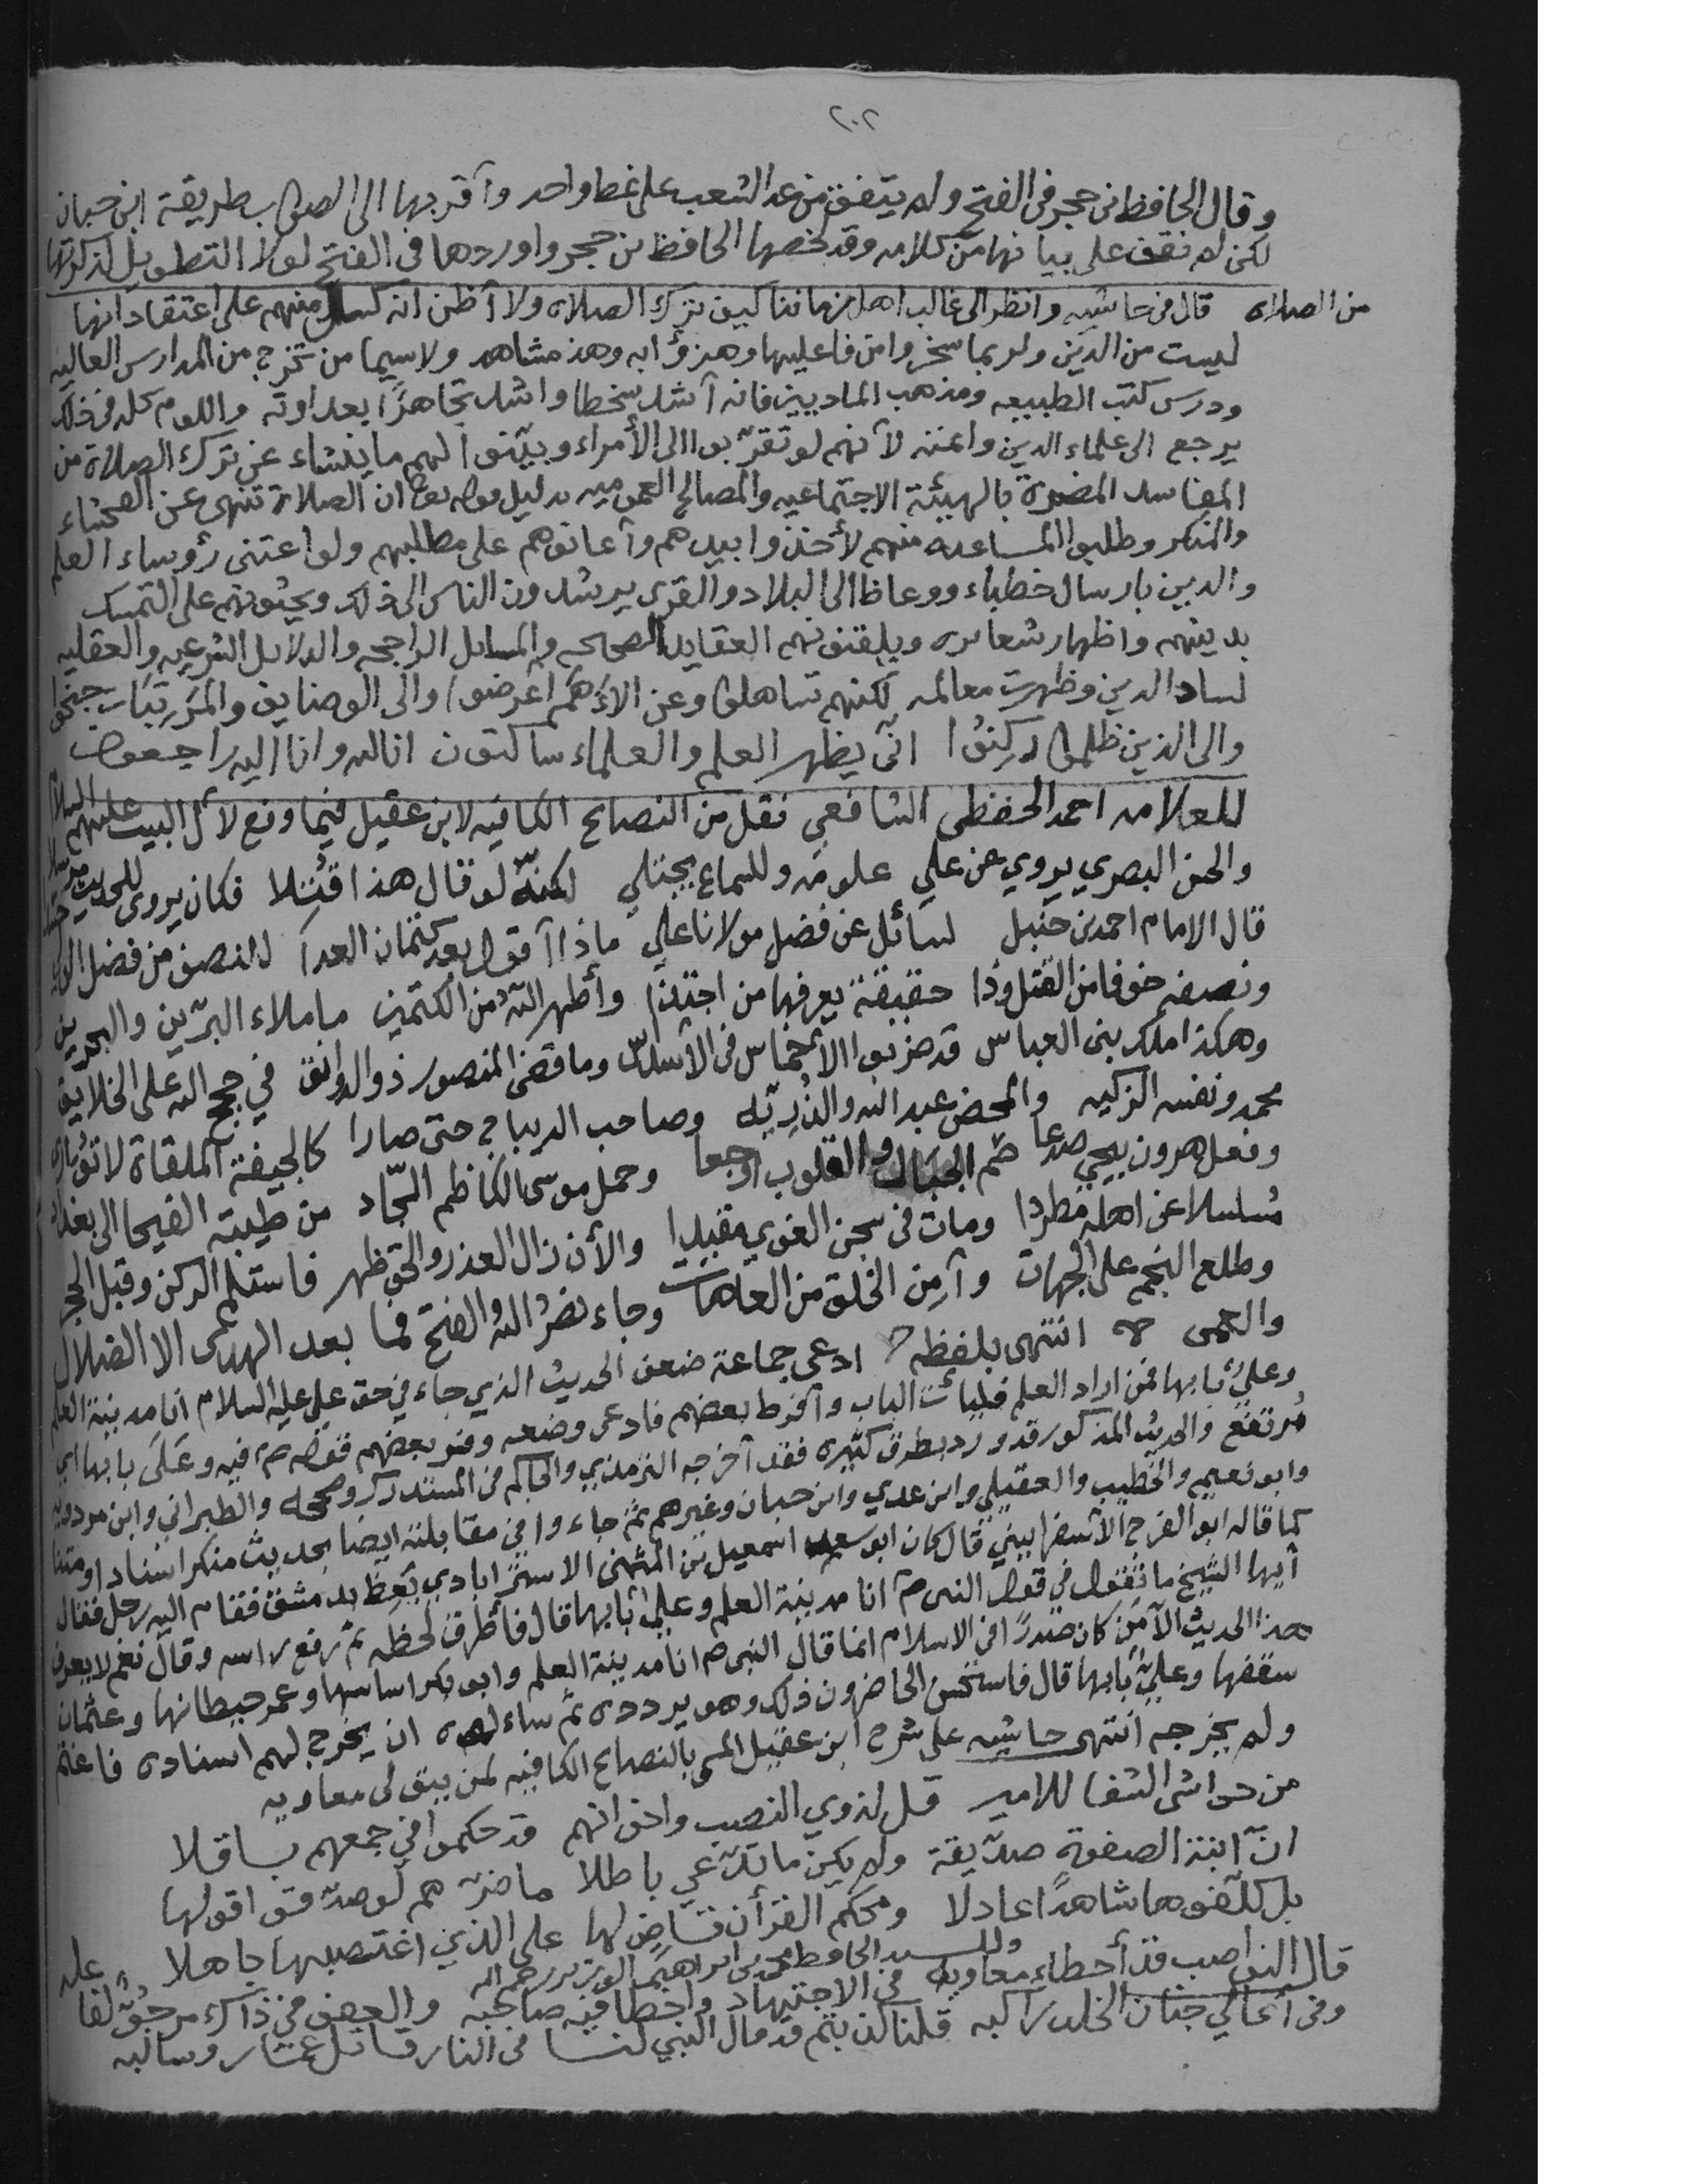 ٢٠٢
وقال الحافظ بن حجر في الفتح ولم يتفق من عد الشعب على نمط واحد وأقربها الى الصواب طريقة ابن حبان
لكن لم نقف على بيانها من كلامه وقد لخصها الحافظ بن حجر واوردها في الفتح لولا التطويل لذكرتها
من الصلاة قال في حاشيه وانظر الى غالب اهل زماننا كيف ترك الصلاة ولا أظن انه كسل منهم على اعتقاد انها
ليست من الدين ولربما سخروا من فاعليها وهزؤا به وهذا مشاهد ولاسيما من تخرج من المدارس العاليه
ودرس كتب الطبيعه ومذهب الماديين فانه أشد سخطا واشد تجاهرًا بعداوته واللوم كله في ذلك
يرجع الى علماء الدين وائمته لأنهم لو تقرّبوا الى الأمراء وبيّنوا لهم ما ينشاء عن ترك الصلاة من
المفاسد المضرة بالهيئة الاجتماعيه والمصالح العموميه بدليل قوله تعا ان الصلاة تنهى عن الفحشاء
والمنكر وطلبوا المساعدة منهم لأخذوا بيدهم وأعانوهم على مطلبهم ولو اعتنى رؤوساء العلم
والدين بارسال خطباء ووعاظ الى البلاد والقرى يرشدون الناس الى ذلك ويحثونهم على التمسك
بدينهم واظهار شعائره ويلقنونهم العقايد الصحيحه والمسايل الراجحه والدلايل الشرعيه والعقليه
لساد الدين وظهرت معالمه لكنهم تساهلوا وعن الأهم أعرضوا والى الوضايف والمرتبات جنحوا
والى الذين ظلموا ركنوا انّى يظهر العلم والعلماء ساكتون انا لله وانا اليه راجعون
للعلامه احمد الحفظي الشافعي نقل من النصائح الكافيه لابن عقيل فيما وقع لأل البيت عليهم السلام
والحسن البصري يروي عن علي علومه وللسماع يجتلي لكنّه لو قال هذا قُتِلا فكان يروى للحديث مرسلا
قال الامام احمد بن حنبل لسائل عن فضل مولانا علي ماذا أقول بعد كتمان العدا للنصف من فضل الولي
ونصفه خوفا من القتل وذا حقيقة يعرفها من اجتذا وأظهر الله من الكتمين ما ملاء البرّين والبحرين
وهكذا املاك بنى العباس قد ضربوا الأخماس في الأسداس وما قضى المنصور ذو الدوانق في حجج الله على الخلايق
محمد ونفسه الزكيه والمحض عبد الله والذريّه وصاحب الديباج حتى صارا كالجيفة الملقاة لا تُوارى
وفعل هرون بيحيى صدعا صُم الجبال والقلوب اوجعا وحمل موسى الكاظم السجّاد من طيبة الفيحا الى بغداد
مسلسلا عن اهله مطردا ومات في سجن الغوي مقيدا والأن زال العذر والحق ظهر فاستلم الركن وقبل الحجر
وطلع النجم على الجهات وآمن الخلق من العاهات وجاء نصرُ الله والفتح فما بعد الهدى الا الضلال
والعمى انتهى بلفظه ادعى جماعة ضعف الحديث الذي جاء في حق علي عليه السلام انا مدينة العلم
وعليٌ بابها فمن اراد العلم فليأت الباب وأفرط بعضهم فادعى وضعه وفسر بعضهم قوله صم فيه وعَلَى بابها اي
مُرتفع والحديث المذكور قد ورد بطرق كثيره فقد أخرجه الترمذي والحاكم في المستدرك وصححه والطبراني وابن مردويه
وابو نعيم والخطيب والعقيلي وابن عدي وابن حبان وغيرهم ثم جاءوا في مقابلته ايضا بحديث منكر اسنادا ومتنا
كما قاله ابو الفرج الأسفراييني قال كان ابو سعيد اسمعيل بن المثنى الاستراباذي يَعِظ بدمشق فقام اليه رجل فقال
أيها الشيخ ما تقول في قول النبي صم انا مدينة العلم وعليٌ بابها قال فأطرق لحظه ثم رفع راسه وقال نعم لا يعرف
هذا الحديث الآمن كان صدرًا في الاسلام انما قال النبي صم انا مدينة العلم وابو بكر اساسها وعمر حيطانها وعثمان
سقفها وعليٌ بابها قال فاستحسن الحاضرون ذلك وهو يردده ثم سالوه ان يخرج لهم اسناده فاغتم
ولم يخرجه انتهى حاشيه على شرح ابن عقيل المسمى بالنصائح الكافيه لمن يتولى معاويه
من حواشى الشفا للامير قل لذوي النصب واخوانهم قد حكموا في جمعهم باقلا
انّ ابنة الصفوة صدّيقة ولم يكن ما تدّعي باطلا ما ضرّهم لو صدّقوا قولها
بل كلّفوها شاهدًا عادلا ومحكم القرأن قاضٍ لها على الذي اغتصبها جاهلا
وللسيد الحافظ محمد بن ابراهيم الوزير رحمه الله
قال النواصب قد أخطاء معاويه في الاجتهاد واخطا فيه صاحبه والعفو في ذاك مرجوٌّ لفاعله
وفي أعالي جنان الخلد راكبه قلنا كذبتم فلم قال النبي لنا في النار قاتل عمّار وسالبه